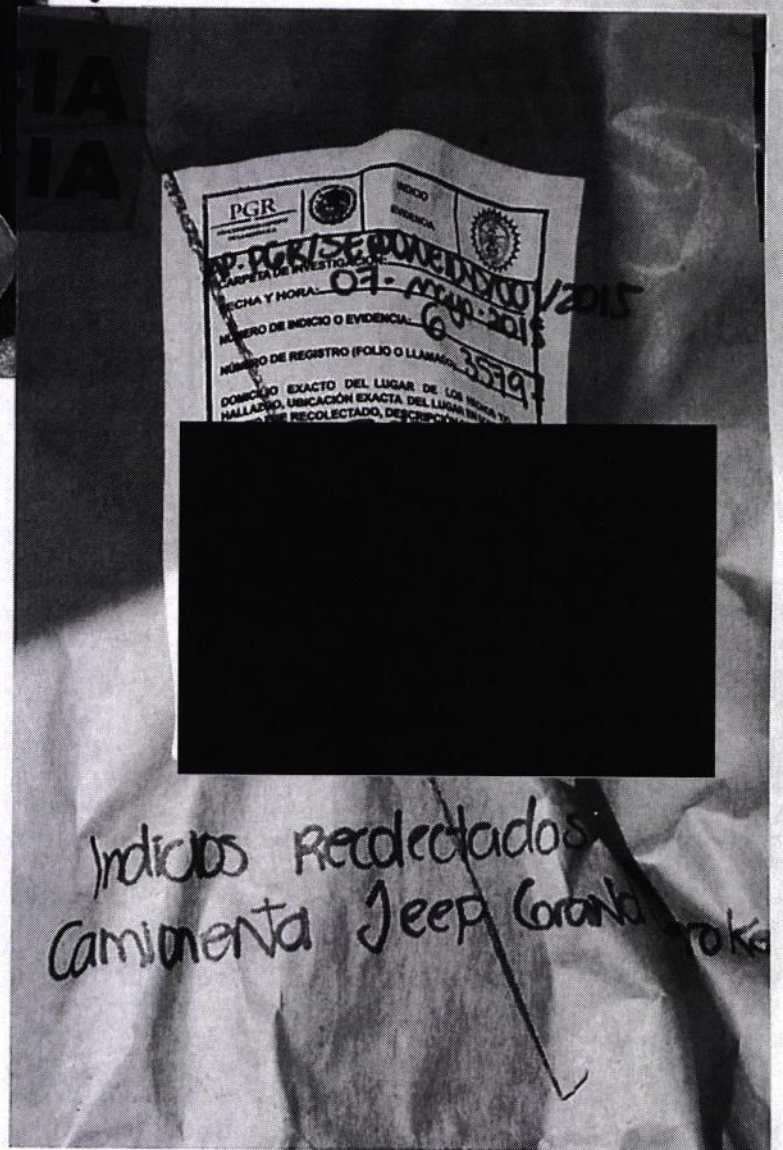 CIA
CIA
PGR
INDICIO
EVIDENCIA
CARPETA DE INVESTIGACIÓN:
/2015
FECHA Y HORA: 07- mayo-2015
NÚMERO DE INDICIO O EVIDENCIA: 6
NÚMERO DE REGISTRO (FOLIO O LLAMADO) 35797
DOMICILIO EXACTO DEL LUGAR DE LOS
HALLAZGO, UBICACIÓN EXACTA DEL LUGAR
FUE RECOLECTADO, DESCRIPCIÓN
Indicios Recolectados
Camionenta Jeep Grand